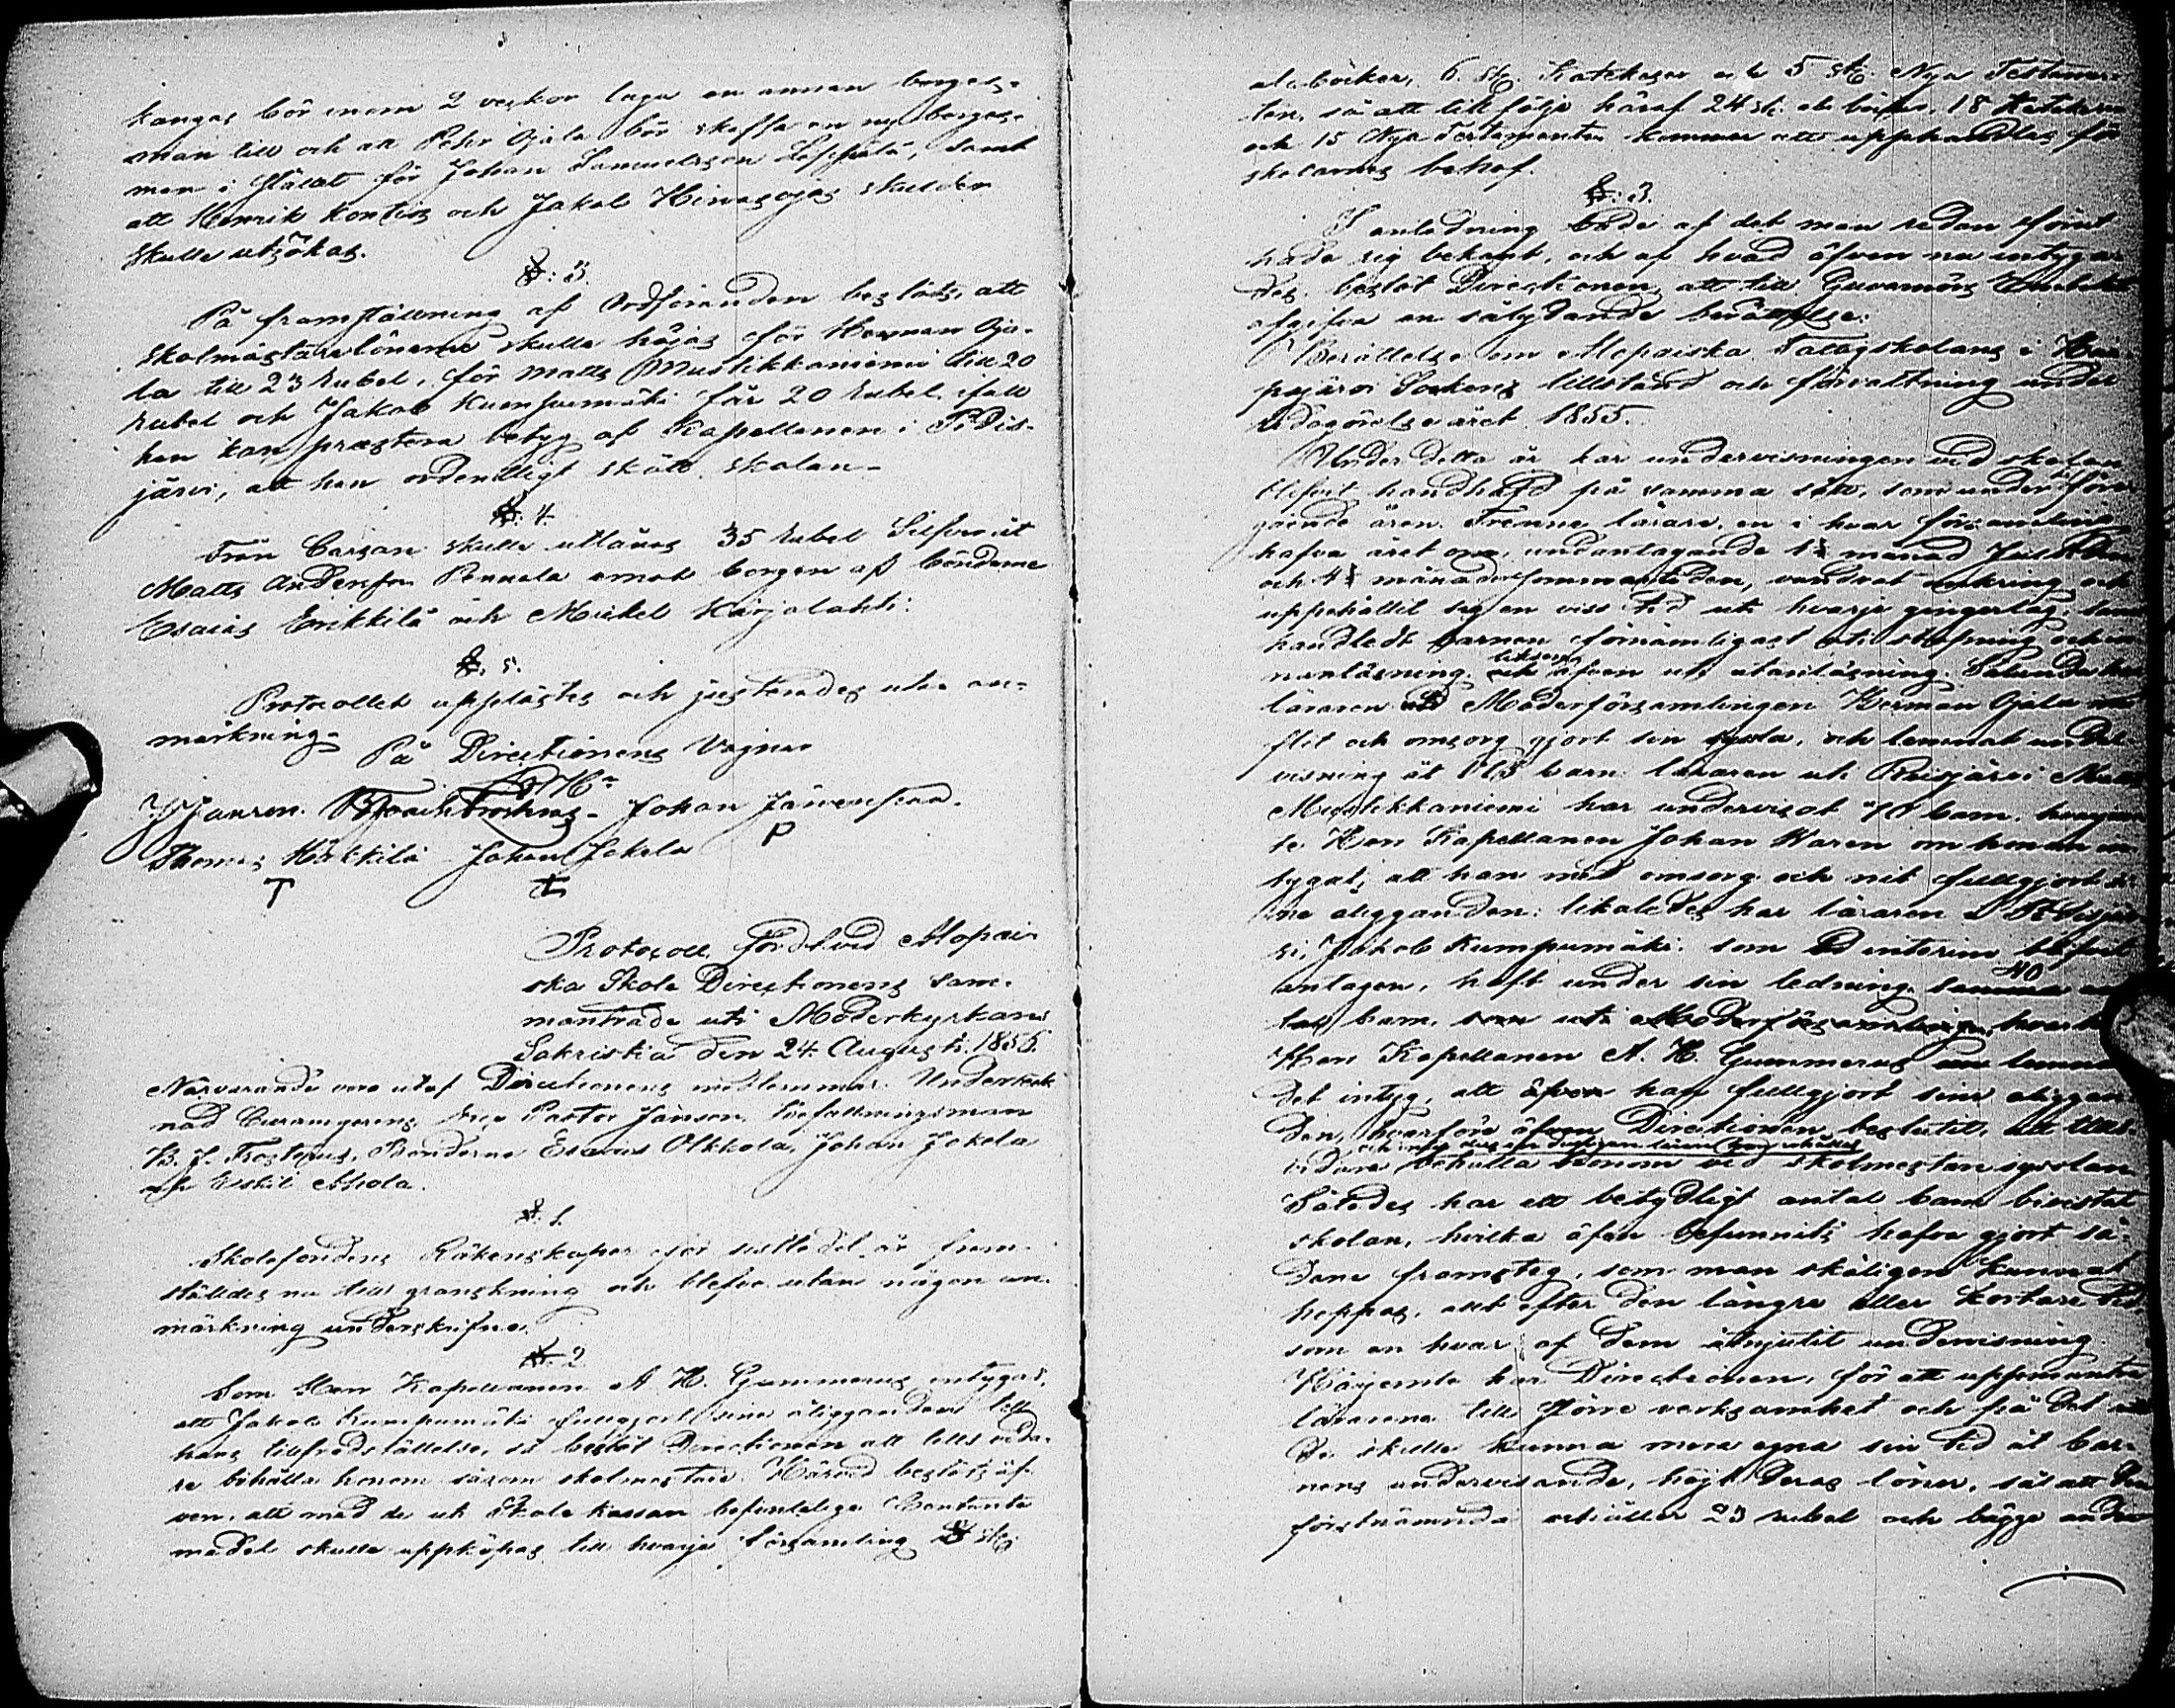 kangas bör inom 2 veckor laga en annan borges-
man till och att Pehr Ojala bör skaffa en ny borges-
man i stället för Johan Samuelsson Leppälä, samt
att Henrik Kontios och Jakob Hirvasojas skulder
skulle utsökas.
§: 3.
På framställning af Ordföranden beslöts, att
skolmästarelönerne skulle höjas för Herman Oja-
la till 23 rubel, för Matts Mustikkaniemi till 20
rubel och Jakob Kumpumäki får 20 rubel, ifall
han kan prestera betyg af Kapellanen i Pidis-
järvi, att han ordentligt skött skolan.
§: 4.
Från Cassan skulle utlånas 35 rubel Silfver åt
Matts Andersson Pennala emot borgen af bönderne
Esaias Erikkilä och Mickel Karjalahti.
§. 5.
Protocollet upplästes och justerades utan an-
märkning.
På Directionens Vägnar
J Janson. B J Frosterus. Johan Jämensson.
P
Thomas Härkkilä Johan Jokela
T
Protocoll, fördt vid Alopæi-
ska Skole Directionens sam-
manträde uti Moderkyrkans
Sakristia den 24 Augusti 1855.
Närvarande voro utaf Directionens medlemmar: Underteck-
nad Curam gerens, Vice Pastor Janson, Befallningsman
B. J. Frosterus, Bönderne Esaias Olkkola, Johan Jokela
och Eskil Ahola.
§. 1.
Skolefondens Räkenskaper för sistledet år fram-
ställdes nu till granskning och blefvo utan någon an-
märkning underskrifne.
§. 2
Som Herr Kapellanen A. H. Gummerus intygat,
att Jakob Kumpumäki fullgjort sina åligganden till
hans tillfredsställelse, så beslöt Directionen att tills vida-
re bibehålla honom såsom skolmästare. Härvid beslöts äf-
ven, att med de uti Skole kassan befinteliga Contanta
medel skulle uppköpas till hvarje församling 8 st:
abcböcker, 6 st. Katekeser och 5 st. Nya Testamen-
ten, så att till följe häraf 24 st. abc böcker, 18 Katekeser
och 15 Nya Testamenter kommer att upphandlas för
skolarnes behof.
§: 3.
I anledning både af det man redan förut
hade sig bekant, och af hvad äfven nu intyga-
des, beslöt Directionen, att till Guvernörs Embetet
afgifva en sålydande berättelse:
Berättelse om Alopæiska Fattigskolans i Haa-
pajärvi Socken tillstånd och förvaltning under
redogörelseåret 1855.
Under detta år har undervisningen vid skolan
blifvit handhafd på samma sätt, som under före-
gående åren. Trenne lärare, en i hvar församling
hafva året om, undantagande 1½ månad Jultiden
och 4½ månader sommartiden, vandrat omkring och
uppehållit sig en viss tid uti hvarje gingerlag, samt
handledt barnen förnämligast uti stafning och in-
nanläsning likasom äfven uti utanläsning. Sålunda har
läraren i Moderförsamlingen Herman Ojala med
flit och omsorg gjort sin syssla, och lemnat under-
visning åt 113 barn: läraren uti Reisjärvi Matts
Mustikkaniemi har undervisat 70 barn, hvarjem-
te Herr Kapellanen Johan Waren om honom in-
tygat, att han med omsorg och nit fullgjort si-
ne åligganden: likaledes har läraren i Pidisjär-
vi, Jakob Kumpumäki, som ad interim blifvit
antagen, haft under sin ledning 40
barn,
Herr Kapellanen A. H. Gummerus lemnat
det intyg, att äfven han fullgjort sina åliggan-
den, hvarföre äfven Directionen beslutit, att tills
vidare behålla honom vid skolmestare sysslan
Således har ett betydligt antal barn bivistat
skolan, hvilka äfven befunnits hafva gjort så-
dana framsteg, som man skäligen kunnat
hoppas, allt efter den längre eller kortare tid
som en hvar af dem åtnjutit undervisning
Härjemte har Directionen, för att uppmuntra
lärarene till större verksamhet och på det att
de skulle kunna mera egna sin tid åt bar-
nens undervisande, höjt deras löner, så att den
förstnämnda erhåller 23 rubel och bägge andra